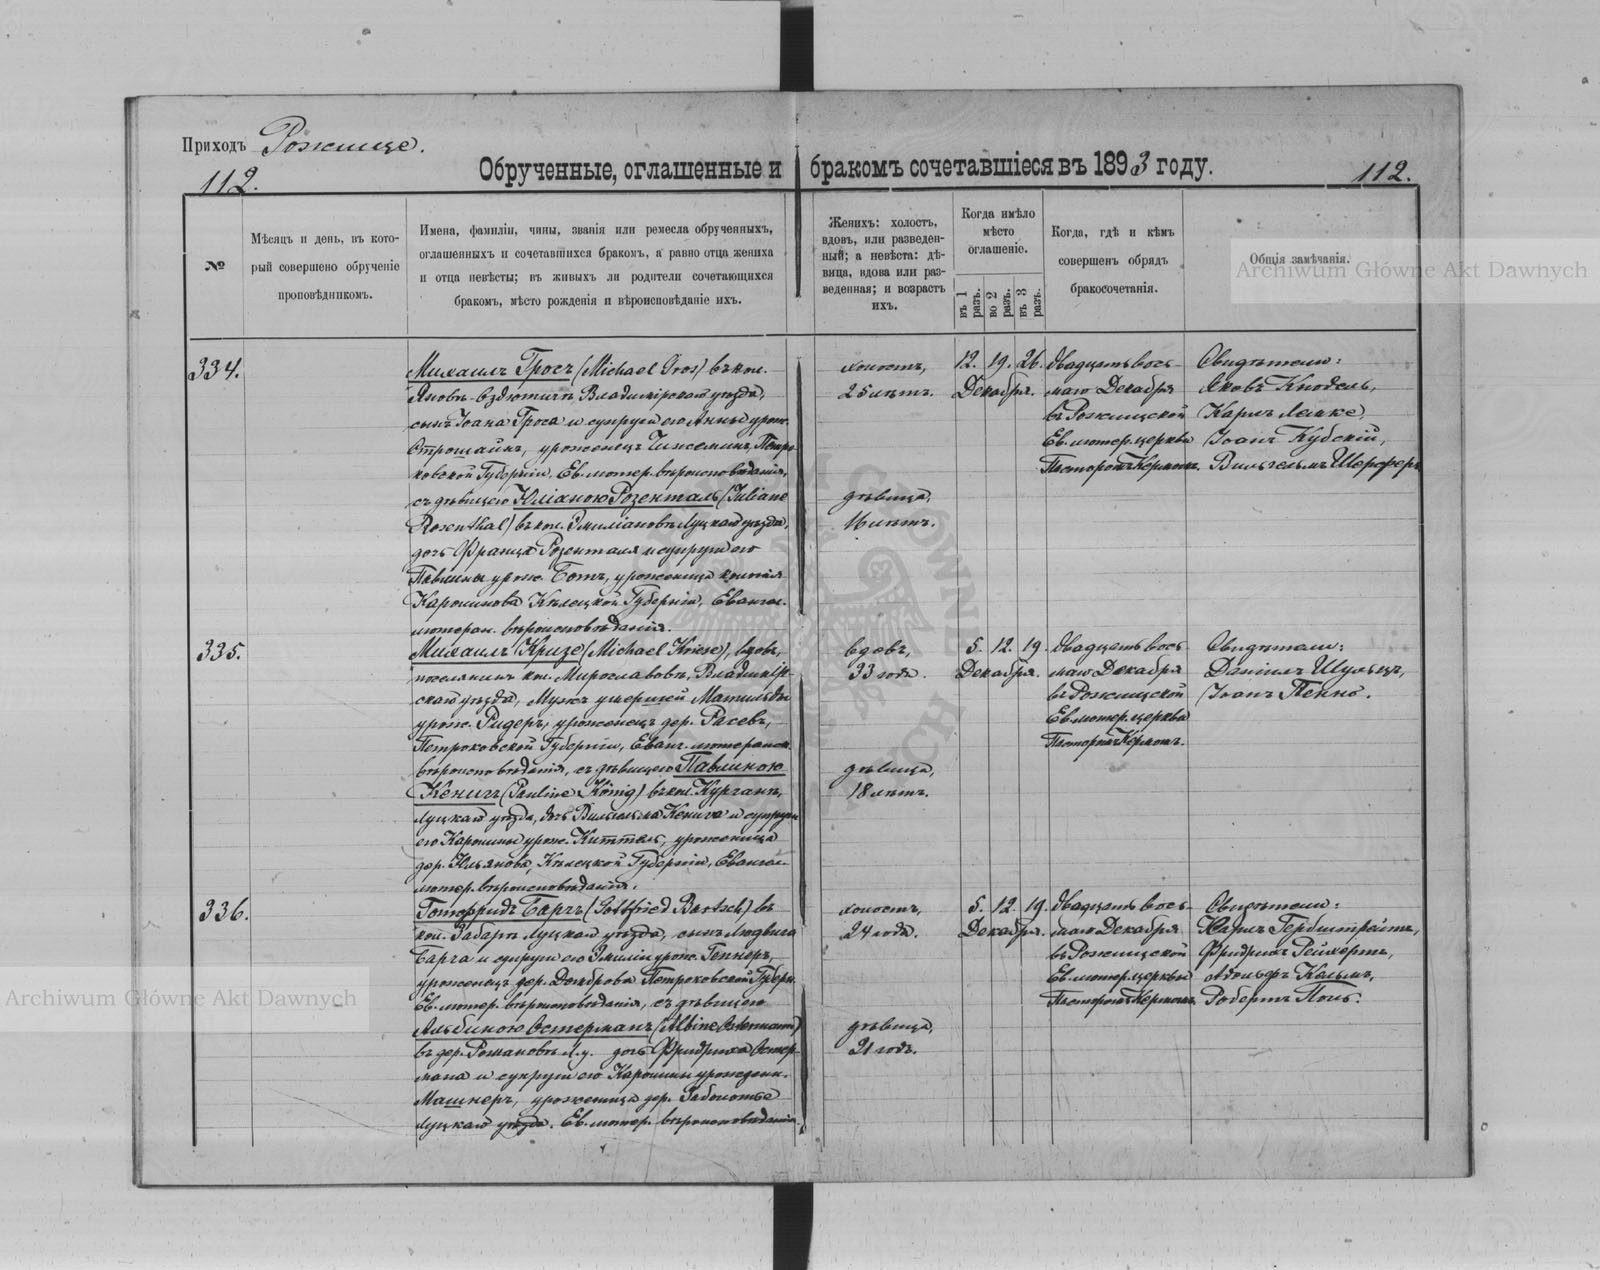 Приходъ Рожище.
112.
Обрученные, оглашенные и бракомъ сочетавшіеся въ 1893 году.
112.
№
Мѣсяцъ и день, въ кото-
рый совершено обрученіе
проповѣдникомъ.
Имена, фамиліи, чины, званія или ремесла обрученныхъ,
оглашенныхъ и сочетавшихся бракомъ, а равно отца жениха
и отца невѣсты; въ живыхъ ли родители сочетающихся
бракомъ, мѣсто рожденія и вѣроисповѣданіе ихъ.
Женихъ: холостъ,
вдовъ, или разведен-
ный; а невѣста: дѣ-
вица, вдова или раз-
веденная; и возрастъ
ихъ.
Когда имѣло
мѣсто
оглашеніе.
въ 1 разъ.
во 2 разъ.
въ 3 разъ.
Когда, гдѣ и кѣмъ
совершенъ обрядъ
бракосочетанія.
Общія замѣчанія.
Archiwum Główne Akt Dawnych
334.
Михаилъ Гросъ (Michael Gros) въ кол.
Владимірскаго уѣзда,
сынъ Іоана Гроса и супруги его Анны урож.
уроженецъ Петро-
ковской Губерніи, Ев. лютер. вѣроисповѣданія,
съ дѣвицею Юліаною Розенталь (Juliane
Rosenthal) въ кол. Эмиліановъ Луцкаго уѣзда,
дочь Франца Розенталя и супруги его
Павлины урож. Ботъ, уроженица колоніи
Каролинова Кѣлецкой Губерніи, Евангел.
лютеран. вѣроисповѣданія.
холостъ,
25 лѣтъ.
дѣвица,
16 лѣтъ.
12. 19. 26.
Декабря.
Двадцать вось-
маго Декабря
въ Рожищской
Ев. лютер. церкви
Пасторомъ Керномъ.
Свидѣтели:
Яковъ Кнодель,
Карлъ Лемке,
Іоанъ Кубскій,
Вильгельмъ Шерферъ
335.
Михаилъ Кризе (Michael Kriese), вдовъ,
поселянинъ кол. Мирославовъ, Владимір-
скаго уѣзда, мужъ умершей Матильды
урож. Ридеръ, уроженецъ дер. Расевъ,
Петроковской Губерніи, Еванг. лютеранск.
вѣроисповѣданія, съ дѣвицею Павлиною
Кенигъ (Pauline König) въ кол. Курганъ,
Луцкаго уѣзда, дочь Вильгельма Кенига и супруги
его Каролины урож. Киттель, уроженица
дер. Юльянова, Кѣлецкой Губерніи, Евангел.
лютер. вѣроисповѣданія.
вдовъ,
33 года.
дѣвица,
18 лѣтъ.
5. 12. 19.
Декабря.
Двадцать вось-
маго Декабря
въ Рожищской
Ев. лютер. церкви
Пасторомъ Керномъ.
Свидѣтели:
Даніилъ Шульцъ,
Іоанъ Пеннъ.
336.
Готфридъ Барчъ (Gottfried Bartsch) въ
кол. Забара Луцкаго уѣзда, сынъ Людвига
Барча и супруги его Эмиліи урож. Геннеръ,
уроженецъ дер. Домброва Петроковской Губерн.
Ев. лютер. вѣроисповѣданія, съ дѣвицею
Альбиною Остерманъ (Albine Ostermann)
въ дер. Романовъ Л. у. дочь Фридриха Остер-
мана и супруги его Каролины урожденн.
Машнеръ, уроженица дер. Заболотье
Луцкаго уѣзда. Ев. лютер. вѣроисповѣданія.
холостъ,
24 года.
дѣвица,
21 годъ.
5. 12. 19.
Декабря.
Двадцать вось-
маго Декабря
въ Рожищской
Ев. лютер. церкви
Пасторомъ Керномъ.
Свидѣтели:
Карлъ Гербштрейтъ,
Фридрихъ Рейхертъ,
Адольфъ Кальмъ,
Робертъ Поль.
Archiwum Główne Akt Dawnych